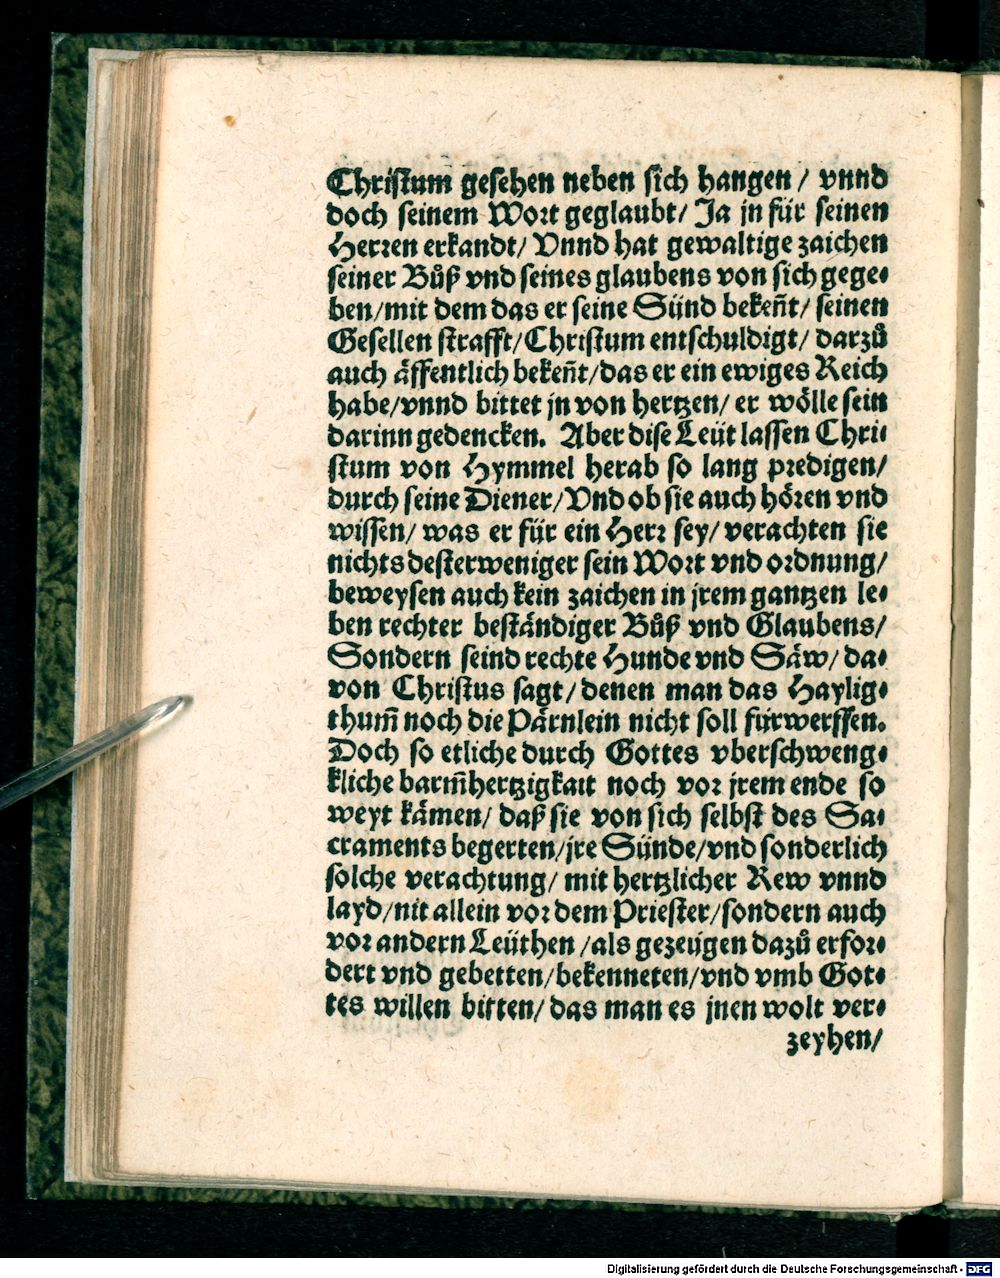 Christum gesehen neben sich hangen / vnnd
doch seinem Wort geglaubt / Ja jn für seinen
Herren erkandt / Vnnd hat gewaltige zaichen
seiner Bůß vnd seines glaubens von sich gege⸗
ben / mit dem das er seine Sünd bekeñt / seinen
Gesellen strafft / Christum entschuldigt / darzů
auch äffentlich bekeñt / das er ein ewiges Reich
habe / vnnd bittet jn von hertzen / er wölle sein
darinn gedencken. Aber dise Leüt lassen Chri⸗
stum von Hymmel herab so lang predigen /
durch seine Diener / Vnd ob sie auch hören vnd
wissen / was er für ein Herr sey / verachten sie
nichts desterweniger sein Wort vnd ordnung /
beweysen auch kein zaichen in jrem gantzen le⸗
ben rechter beständiger Bůß vnd Glaubens /
Sondern seind rechte Hunde vnd Säw / da⸗
von Christus sagt / denen man das Haylig⸗
thum̃ noch die Pärnlein nicht soll fürwerffen.
Doch so etliche durch Gottes vberschweng⸗
kliche barm̃hertzigkait noch vor jrem ende so
weyt kämen / daß sie von sich selbst des Sa⸗
craments begerten / jre Sünde / vnd sonderlich
solche verachtung / mit hertzlicher Rew vnnd
layd / nit allein vor dem Priester / sondern auch
vor andern Leüthen / als gezeügen dazů erfor⸗
dert vnd gebetten / bekenneten / vnd vmb Got⸗
tes willen bitten / das man es jnen wolt ver⸗
zeyhen /
Digitalisierung gefördert durch die Deutsche Forschungsgemeinschaft - DFG